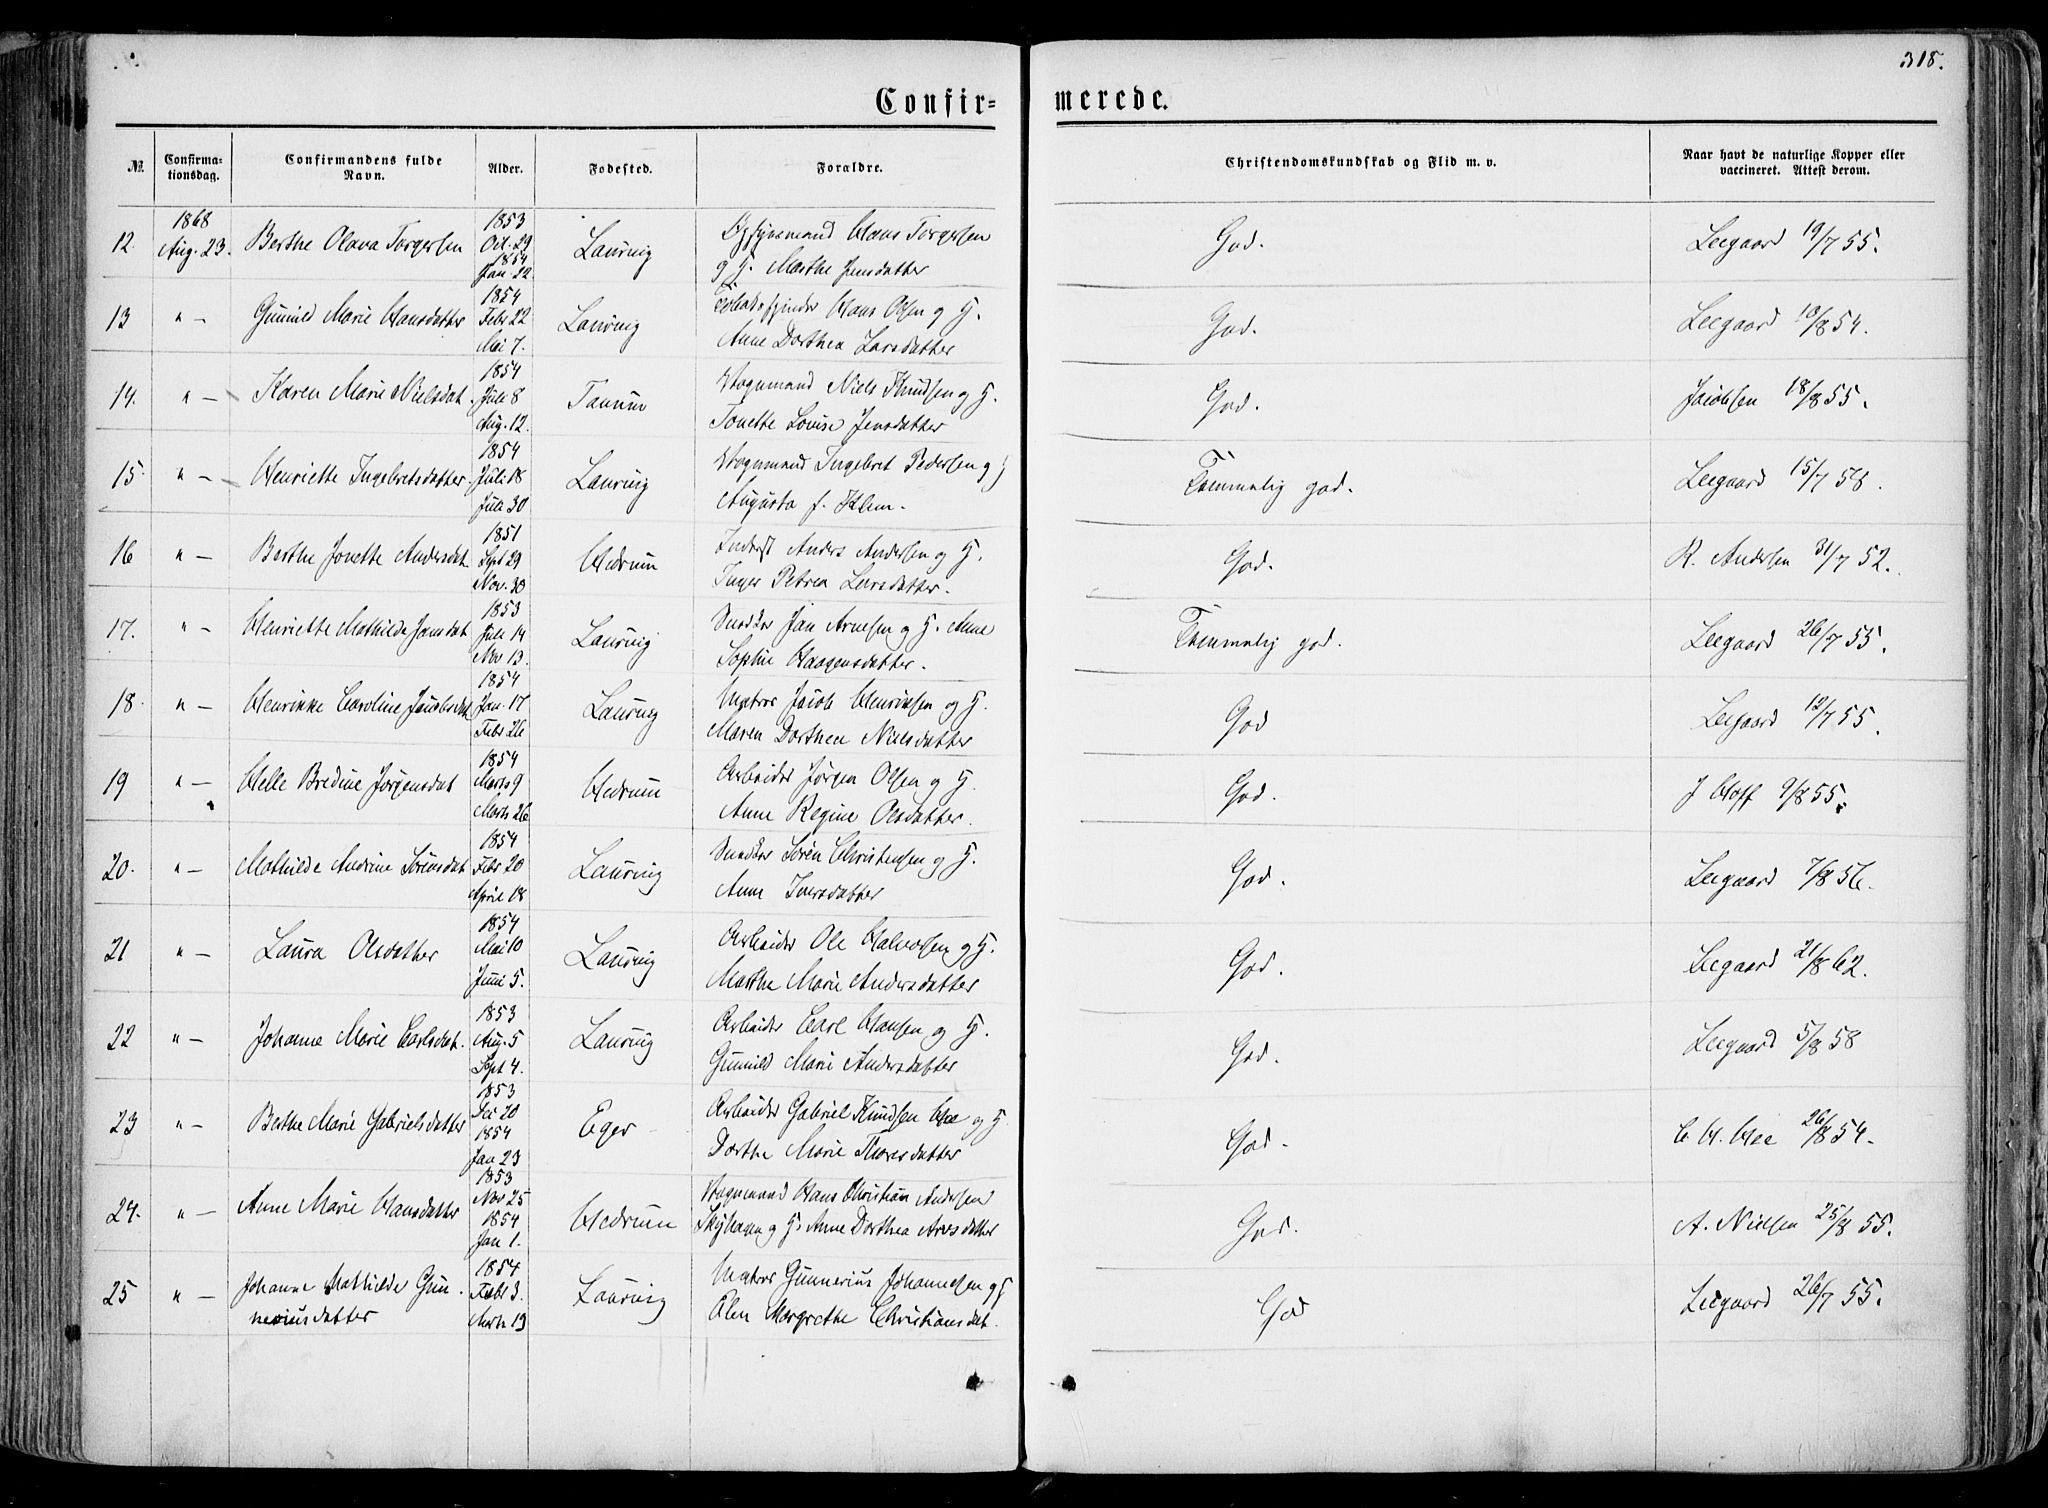 318.
Confirmerede.
№. Confirmationsdag. Confirmandens fulde Navn. Alder. Fødested. Forældre. Christendomskundskab og Flid m. v. Naar havt de naturlige Kopper eller vaccineret. Attest derom.
12. 1868 Aug. 23. Berthe Olava Torgersen 1853 Oct. 29 1854 Jan. 22 Laurvig Hans Torgersen
og H. Marthe Jensdatter God. Leegaard 19/7 55.
13 " — Gunild Marie Hansdatter 1854 Febr 22 Mai 7. Laurvig Hans Olsen og H.
Anne Dorthea Larsdatter God. Leegaard 18/8 54.
14. " — Karen Marie Nielsdat. 1854 Juli 8 Aug. 12. Tanum Vognmand Niels Knudsen og H.
Tonette Lovise Jensdatter God. Jacobsen 18/8 55.
15. " — Henriette Ingebretsdatter 1854 Juli 18 Juli 30 Laurvig Vognmand Ingebret Pedersen og H
Augusta f. Klem. Temmelig god. Leegaard 15/7 58.
16 " — Berthe Jonette Andersdat. 1851 Sept 29 Nov. 30 Hedrum Inderst Anders Andersen og H.
Inger Petrea Larsdatter. God. R. Andersen 31/7 52.
17. " — Henriette Mathilde Jansdat 1853 Juli 14 Nov 13. Laurvig Snedker Jan Arnesen og H. Anne
Sophie Haagensdatter. Temmelig god. Leegaard 26/7 55.
18. " — Henrikke Caroline Jacobsdat 1854 Jan. 17 Febr 26 Laurvig Matros Jacob Henriksen og H.
Maren Dorthea Nielsdatter God Leegaard 12/7 55.
19 " — Helle Bredine Jørgensdat 1854 Marts 9 Marts 26 Hedrum Arbeider Jørgen Olsen og H.
Anne Regine Olsdatter. God. J Hoff 9/8 55.
20. " — Mathilde Andrine Sørensdat 1854 Febr 20 April 18 Laurvig Snedker Søren Christensen og H.
Anne Iversdatter God. Leegaard 7/8 56.
21 " — Laura Olsdatter 1854 Mai 10 Juni 5. Laurvig Arbeider Ole Halvorsen og H.
Marthe Marie Andersdatter God. Leegaard 21/8 62.
22 " — Johanne Marie Carlsdat. 1853 Aug. 5 Sept 4. Laurvig Arbeider Carl Hansen og H.
Gunild Marie Andersdatter God. Leegaard 5/8 58
23 " — Berthe Marie Gabrielsdatter 1853 Dec 20 1854 Jan 23 Eger Arbeider Gabriel Knudsen Hoe og H
Dorthe Marie Thoresdatter God. 26/8 54.
24. " — Anne Marie Hansdatter 1853 Nov 25 1854 Jan 1. Hedrum Vognmand Hans Christian Andersen
og H. Anne Dorthea God. A. Nielsen 25/8 55.
25 " — Johanne Mathilde Gun-
neriusdatter 1854 Febr 3. Marts 19 Laurvig Matros Gunnerius Johannesen og H
Olen Margrethe Christiansdat. God Leegaard 26/7 55.